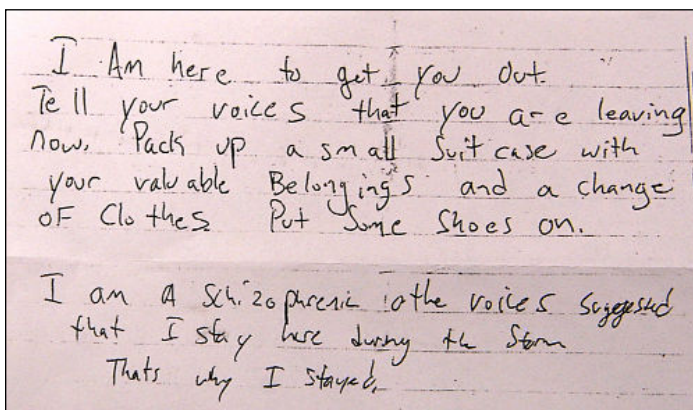 I Am here to get you out.
Tell your voices that you are leaving
now. Pack up a small Suitcase with
your valuable Belongings and a change
of Clothes. Put Some Shoes on.
I am A Schizophrenic the voices suggested
that I stay here during the Storm
Thats why I stayed.